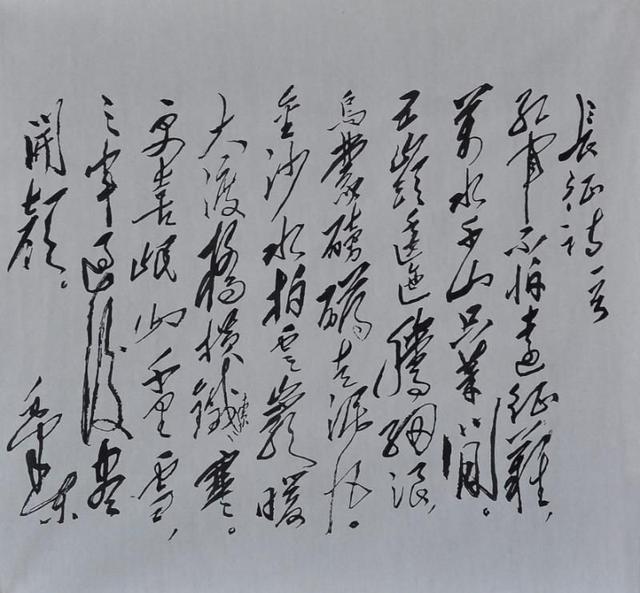 長征詩一首
紅軍不怕遠征難，
萬水千山只等閒。
五嶺逶迤騰細浪，
烏蒙磅礴走泥丸。
金沙水拍雲崖暖
大渡橋橫鐵索寒。
更喜岷山千里雪，
三軍過後盡
開顏。
毛澤東